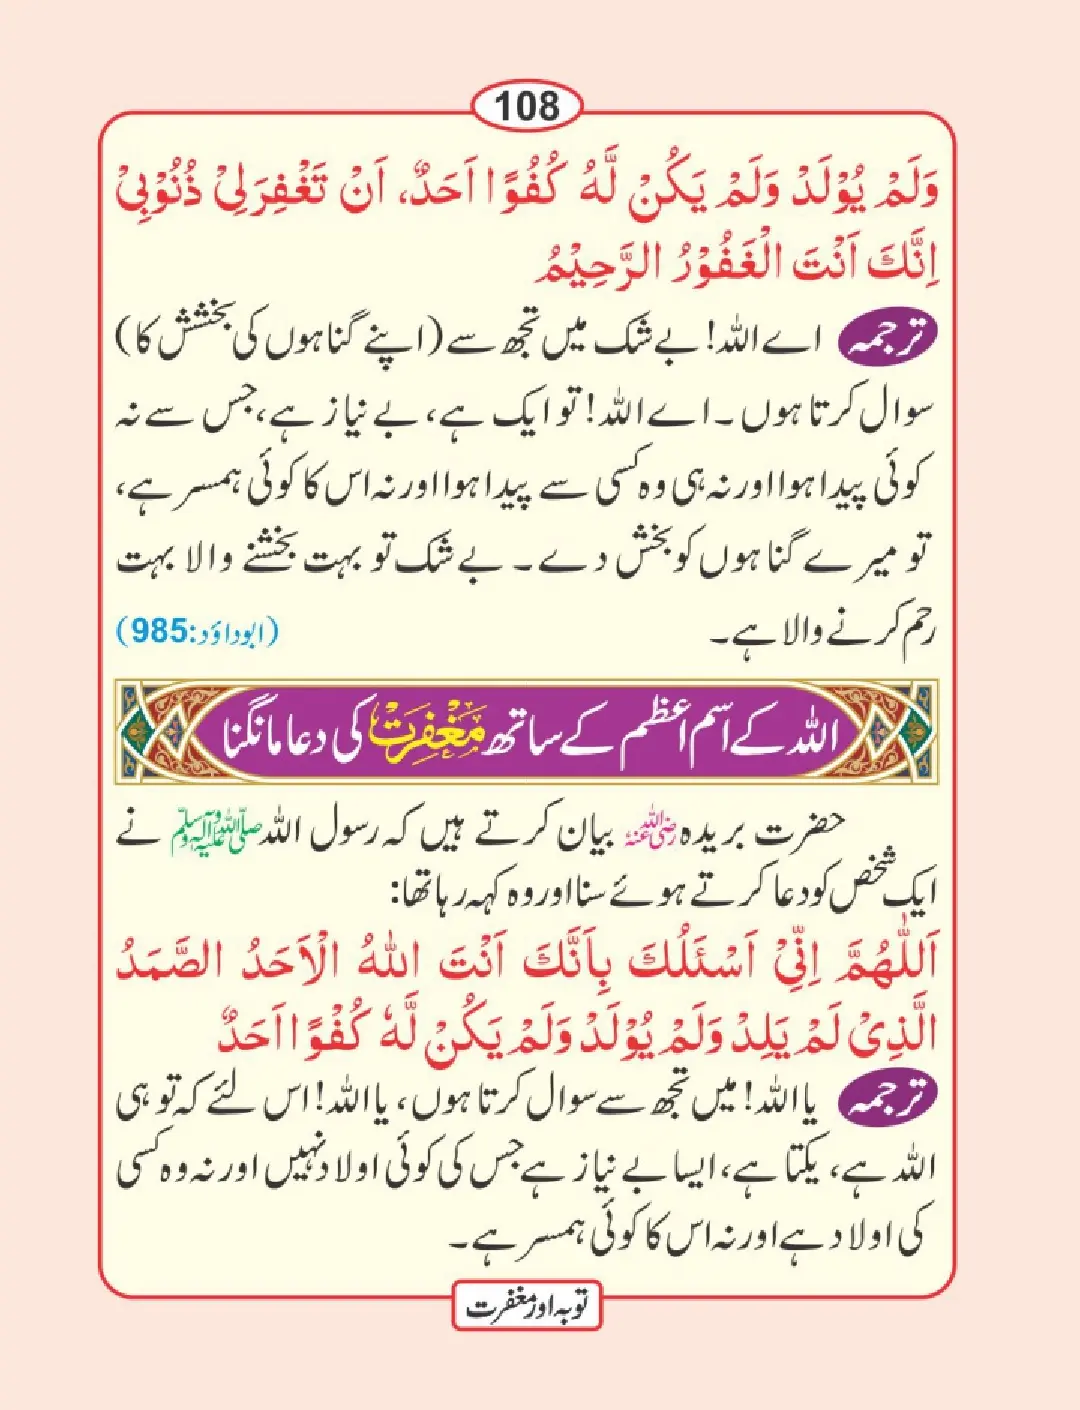 108
وَلَمْ يُوْلَدْ وَلَمْ يَكُنْ لَّهُ كُفُوًا اَحَدٌ، اَنْ تَغْفِرَلِىْ ذُنُوْبِىْ
اِنَّكَ اَنْتَ الْغَفُوْرُ الرَّحِيْمُ
ترجمہ اے اللہ! بے شک میں تجھ سے (اپنے گناہوں کی بخشش کا)
سوال کرتا ہوں۔ اے اللہ! تو ایک ہے، بے نیاز ہے، جس سے نہ
کوئی پیدا ہوا اور نہ ہی وہ کسی سے پیدا ہوا اور نہ اس کا کوئی ہمسر ہے،
تو میرے گناہوں کو بخش دے۔ بے شک تو بہت بخشنے والا بہت
رحم کرنے والا ہے۔ (ابوداؤد:985)
اللہ کے اسم اعظم کے ساتھ مَغْفِرَتْ کی دعا مانگنا
حضرت بریدہ رضی اللہ عنہ بیان کرتے ہیں کہ رسول اللہ صلی اللہ علیہ وآلہ وسلم نے
ایک شخص کو دعا کرتے ہوئے سنا اور وہ کہہ رہا تھا:
اَللّٰهُمَّ اِنِّىْ اَسْئَلُكَ بِاَنَّكَ اَنْتَ اللّٰهُ الْاَحَدُ الصَّمَدُ
الَّذِىْ لَمْ يَلِدْ وَلَمْ يُوْلَدْ وَلَمْ يَكُنْ لَّهٗ كُفْوًا اَحَدٌ
ترجمہ یااللہ! میں تجھ سے سوال کرتا ہوں، یااللہ! اس لئے کہ تو ہی
اللہ ہے، یکتا ہے، ایسا بے نیاز ہے جس کی کوئی اولاد نہیں اور نہ وہ کسی
کی اولاد ہے اور نہ اس کا کوئی ہمسر ہے۔
توبہ اور مغفرت